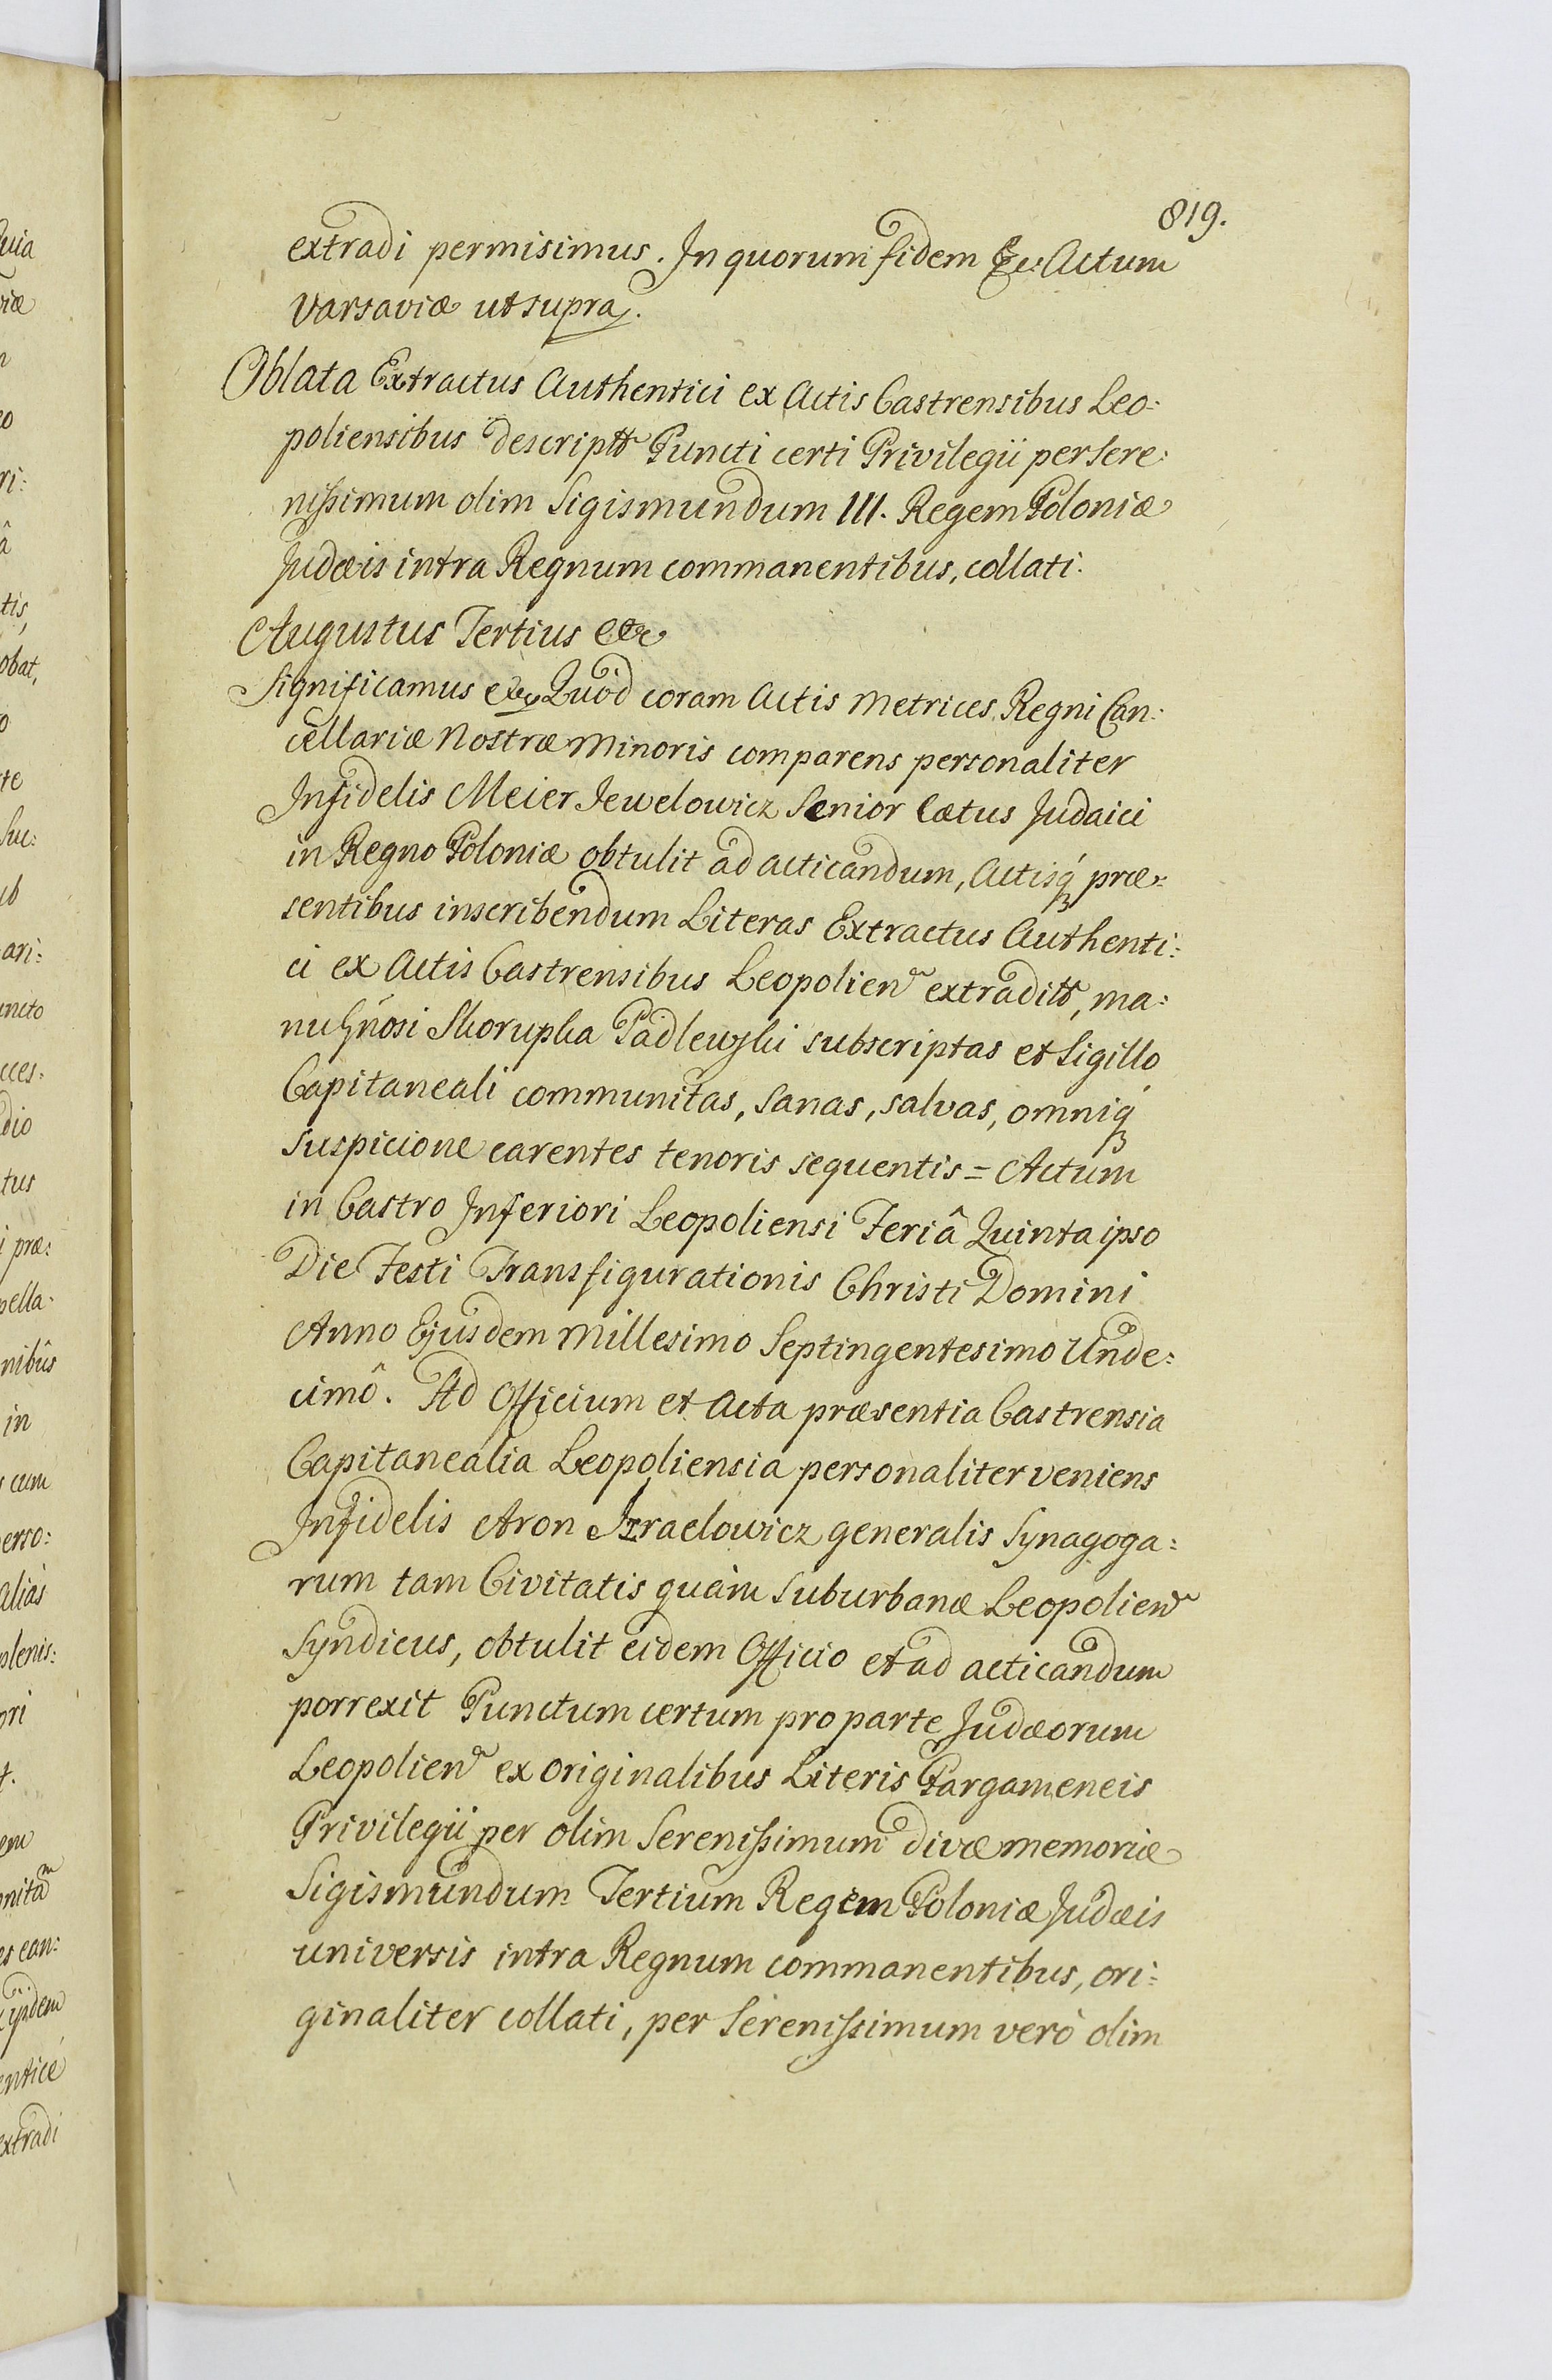 819.
extradi permisimus. In quorum fidem &c: Actum
Varsaviæ ut supra.
Oblata Extractus Authentici ex Actis Castrensibus Leo:
poliensibus descriptt Puncti certi Privilegii per Sere:
nissimum olim Sigismundum III. Regem Poloniæ
Judæis intra Regnum commanentibus, collati.
Augustus Tertius etc
Significamus etc Quod coram Actis Metrices Regni Can:
cellariæ Nostræ Minoris comparens personaliter
Infidelis Meier Jewelowicz Senior Cætus Judaici
in Regno Poloniæ obtulit ad acticandum, Actisq́ præ:
sentibus inscribendum Literas Extractus Authenti:
ci ex Actis Castrensibus Leopolien extraditt, ma:
nu Gñosi Skorupka Padlewski subscriptas et Sigillo
Capitaneali communitas, sanas, salvas, omniq́
suspicione carentes tenoris sequentis = Actum
in Castro Inferiori Leopoliensi Feriâ Quinta ipso
Die Festi Transfigurationis Christi Domini
Anno Ejusdem Millesimo Septingentesimo Unde:
cimô. Ad Officium et Acta præsentia Castrensia
Capitanealia Leopoliensia personaliter veniens
Infidelis Aron Izraelowicz generalis Synagoga:
rum tam Civitatis quàm Suburbanæ Leopolien
Syndicus, obtulit eidem Officio et ad acticandum
porrexit Punctum certum pro parte Judæorum
Leopolien ex originalibus Literis Pargameneis
Privilegii per olim Serenissimum divæ memoriæ
Sigismundum Tertium Regem Poloniæ Judæis
universis intra Regnum commanentibus, ori:
ginaliter collati, per Serenissimum verò olim